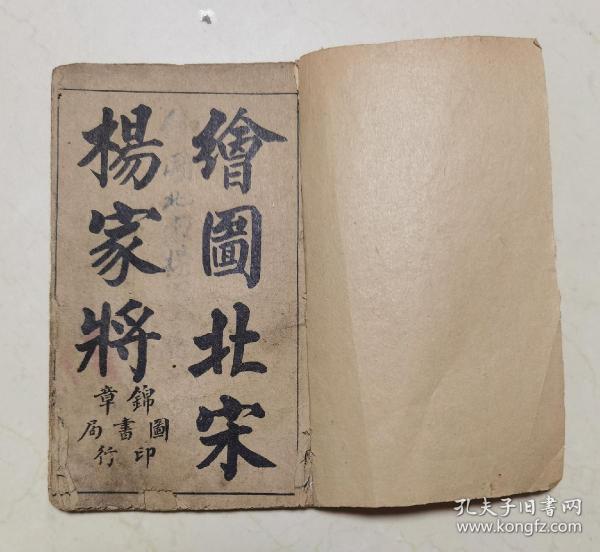 繪圖北宋
楊家將
錦章圖書局印行
孔夫子旧书网
www.kongfz.com